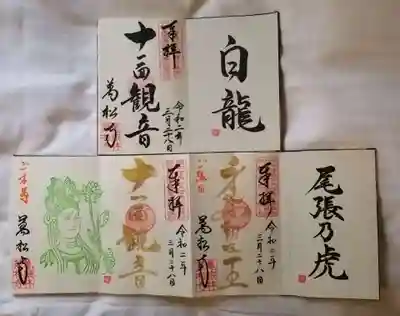 白龍
奉拝
十一面観音
令和二年
三月二十八日
萬松寺
尾張乃虎
奉拝
令和二年
三月二十八日
萬松寺
奉拝
十一面観音
令和二年
三月二十八日
萬松寺